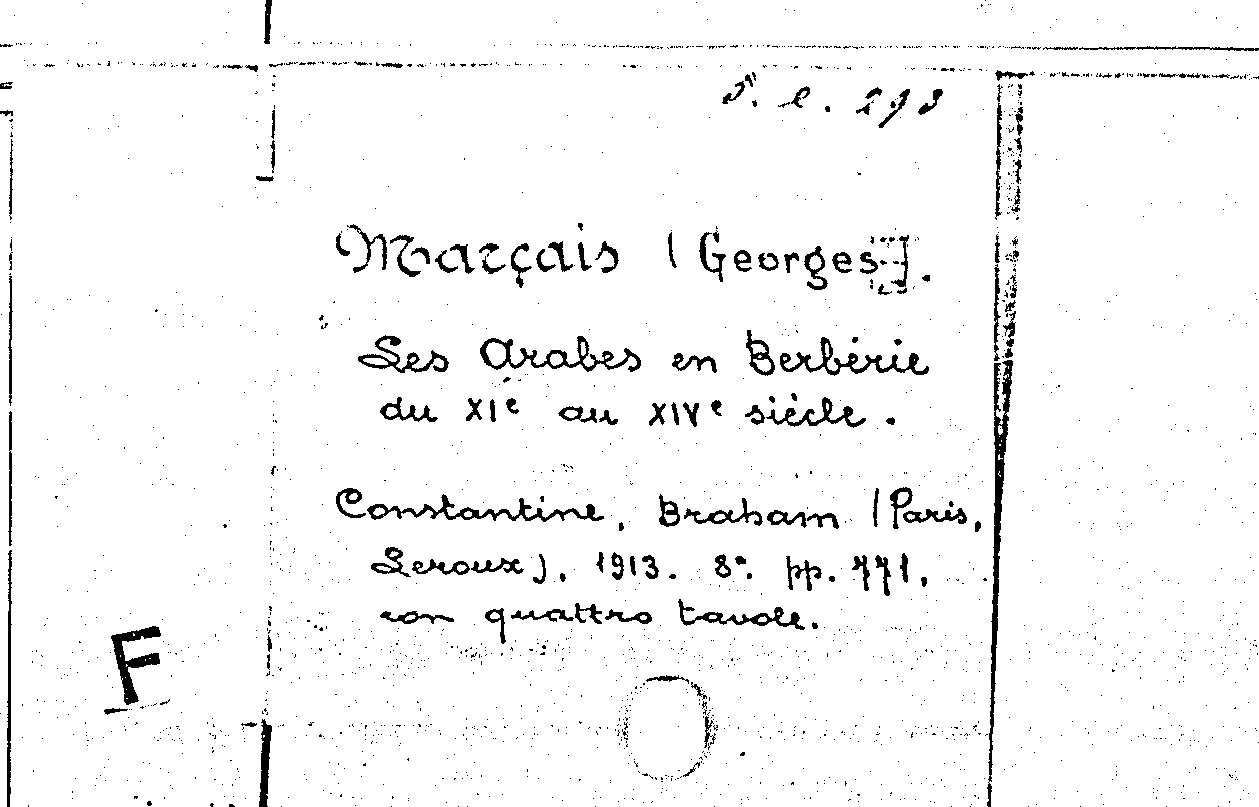 S. l. 293
Marçais (Georges).
Les Arabes en Berbérie
du XIe au XIVe siècle.
Constantine, Braham (Paris,
Leroux), 1913. 8°. pp. 771.
con quattro tavole.
F